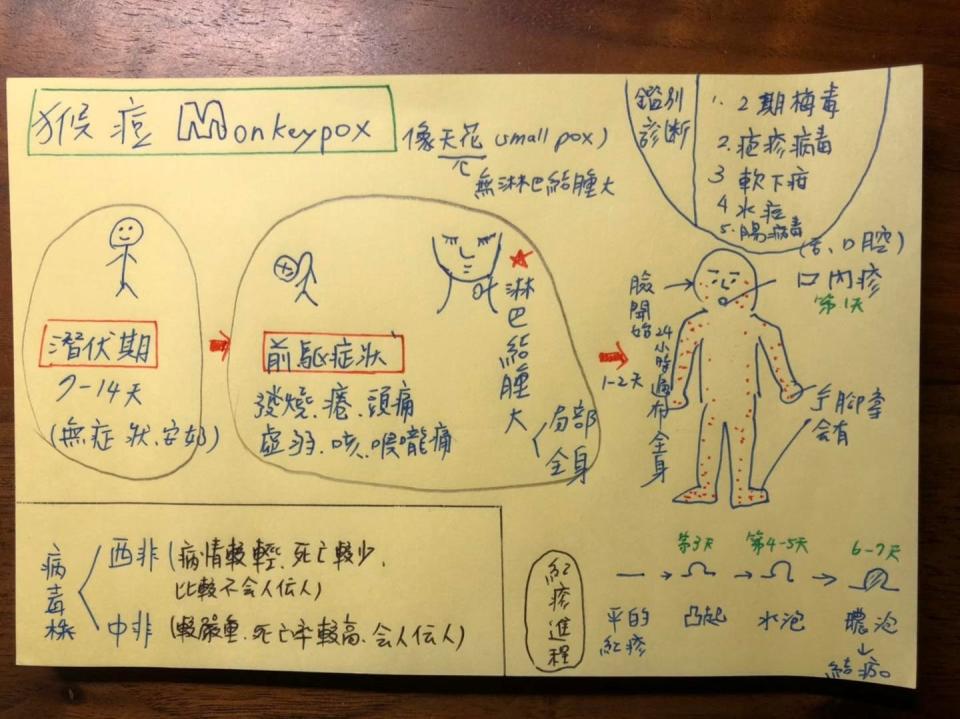 猴痘 Monkeypox
像天花 (small pox)
無淋巴結腫大
鑑別診斷
1. 2期梅毒
2. 疱疹病毒
3 軟下疳
4 水痘
5. 腸病毒
潛伏期
7-14天
(無症狀、安好)
前驅症狀
發燒、倦、頭痛
虛弱、咳、喉嚨痛
淋巴結腫大
局部
全身
1-2天
臉開始
24小時遍布全身
(舌、口腔)
口內疹
第1天
手腳掌
会有
病毒株
西非 (病情較輕、死亡較少、
比較不会人伝人)
中非 (較嚴重、死亡率較高、会人伝人)
紅疹進程
第3天
第4-5天
6-7天
平的
紅疹
凸起
水泡
膿泡
結痂